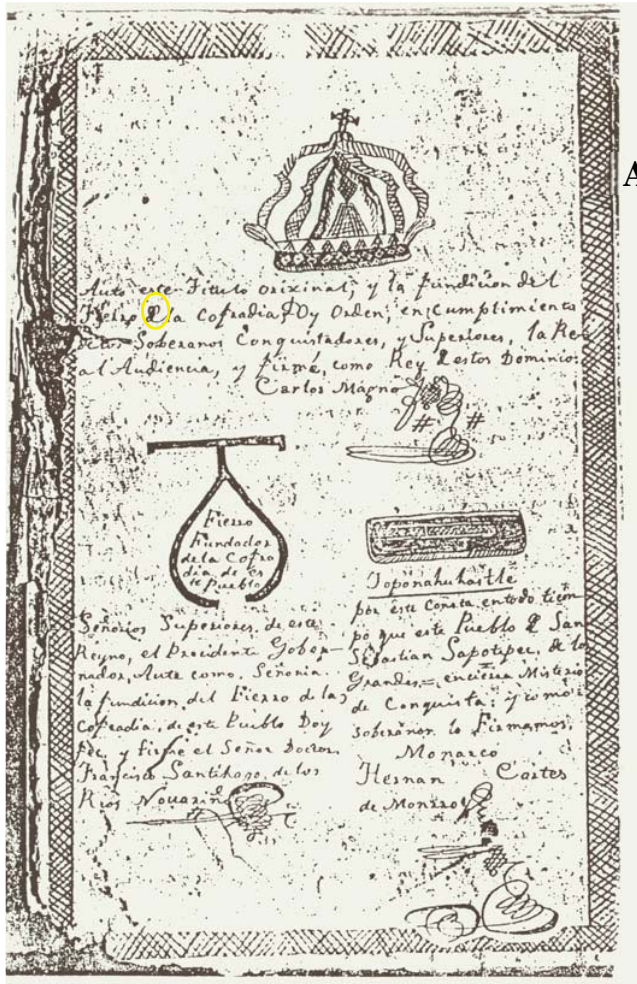 A
Auto este Titulo orixinal, y la fundicion del
Fierro de la Cofradia, Doy Orden, en cumplimiento
de los Soberanos Conquistadores, y Superiores, la Re
al Audiencia, y firmé, como Rey destos Dominios
Carlos Magno
Fierro
Fundador
de la Cofra
dia de es
te Pueblo
Toponahuhastle
Señorios Superiores de este
Reyno, el Precidente Gober-
nador, Aute como, Señoria
la fundicion, del Fierro de la
Cofradia, de este Pueblo Doy
Feé, y firmé el Señor Doctor
Francisco Santihago, de los
Rios
por este Consta, en todo tiem
po que este Pueblo de San
Sebastian Sapotepec, de lo
Grandes=, encierra Misterio
de Conquista; y como
soberanos lo Firmamos,
Monarco
Hernan Cortes
de Monrroe